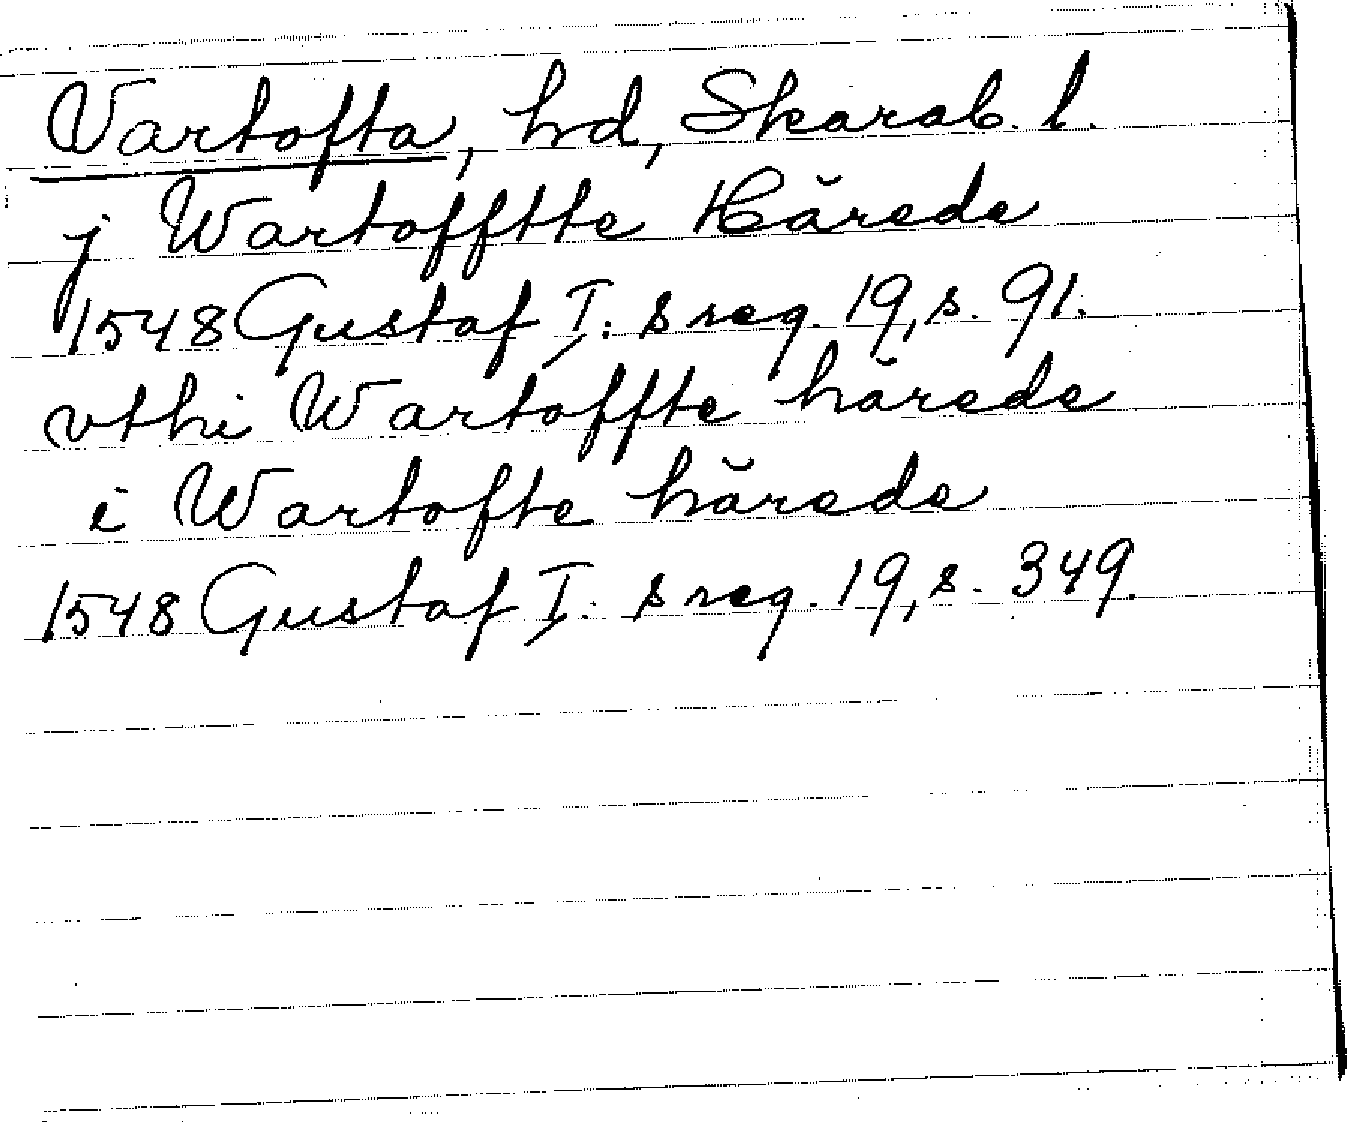 Vartofta, hd, Skarab. l.
j Wartofftte Härede
1548 Gustaf I:s reg. 19, s. 91.
vthi Wartoffte härede
i Wartofte härede
1548 Gustaf I:s reg. 19, s. 349.